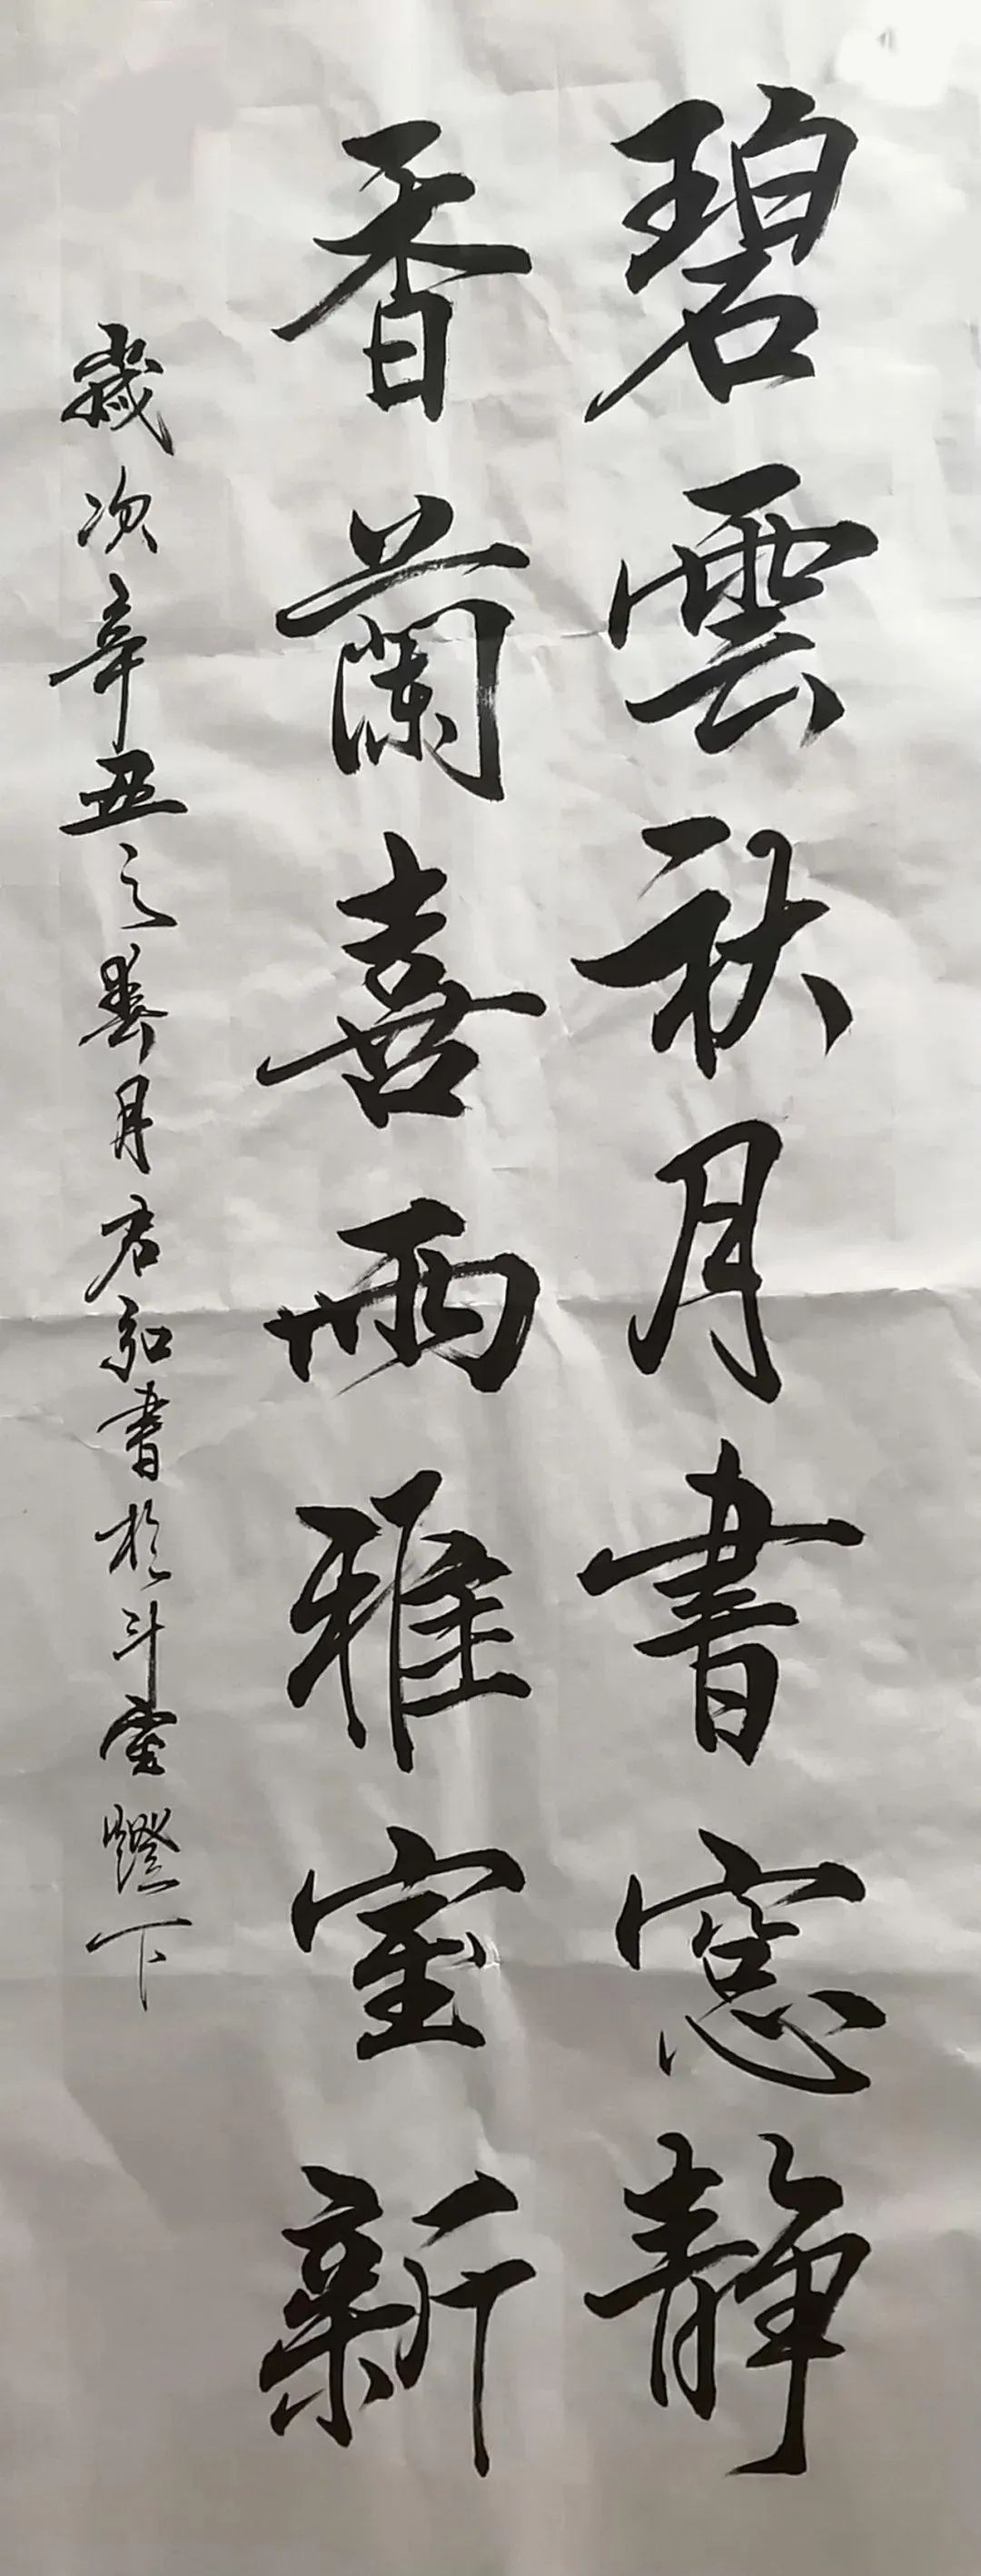 碧雲秋月書窓靜
香蘭喜雨雅室新
歲次辛丑之春月君弘書於斗室燈下